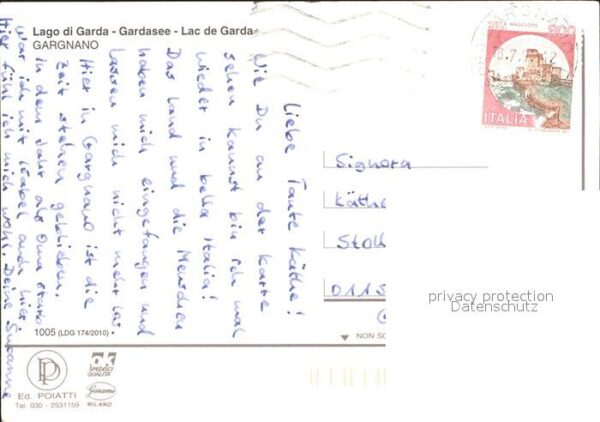 Lago di Garda - Gardasee - Lac de Garda
GARGNANO
Liebe Tante Käthe!
Wie Du an der Karte
sehen kannst bin ich mal
wieder in bella Italia!
Das Land und die Menschen
haben mich eingefangen und
lassen mich nicht mehr los.
Hier in Gargnano ist die
Zeit stehen geblieben.
In dem Jahr als Oma starb
war ich mit Isabel auch hier.
Hier fühl ich mich wohl. Deine Susanne
ROCCA MAGGIORE
ASSISI
200
ITALIA
Signora
Käthe
Stolb
0115
privacy protection
Datenschutz
1005 (LDG 174/2010)
NON SC
P
Ed. POIATTI
Tel. 030 - 2531159
OK
SPECIFICO
QUALITÀ
Garami
MILANO